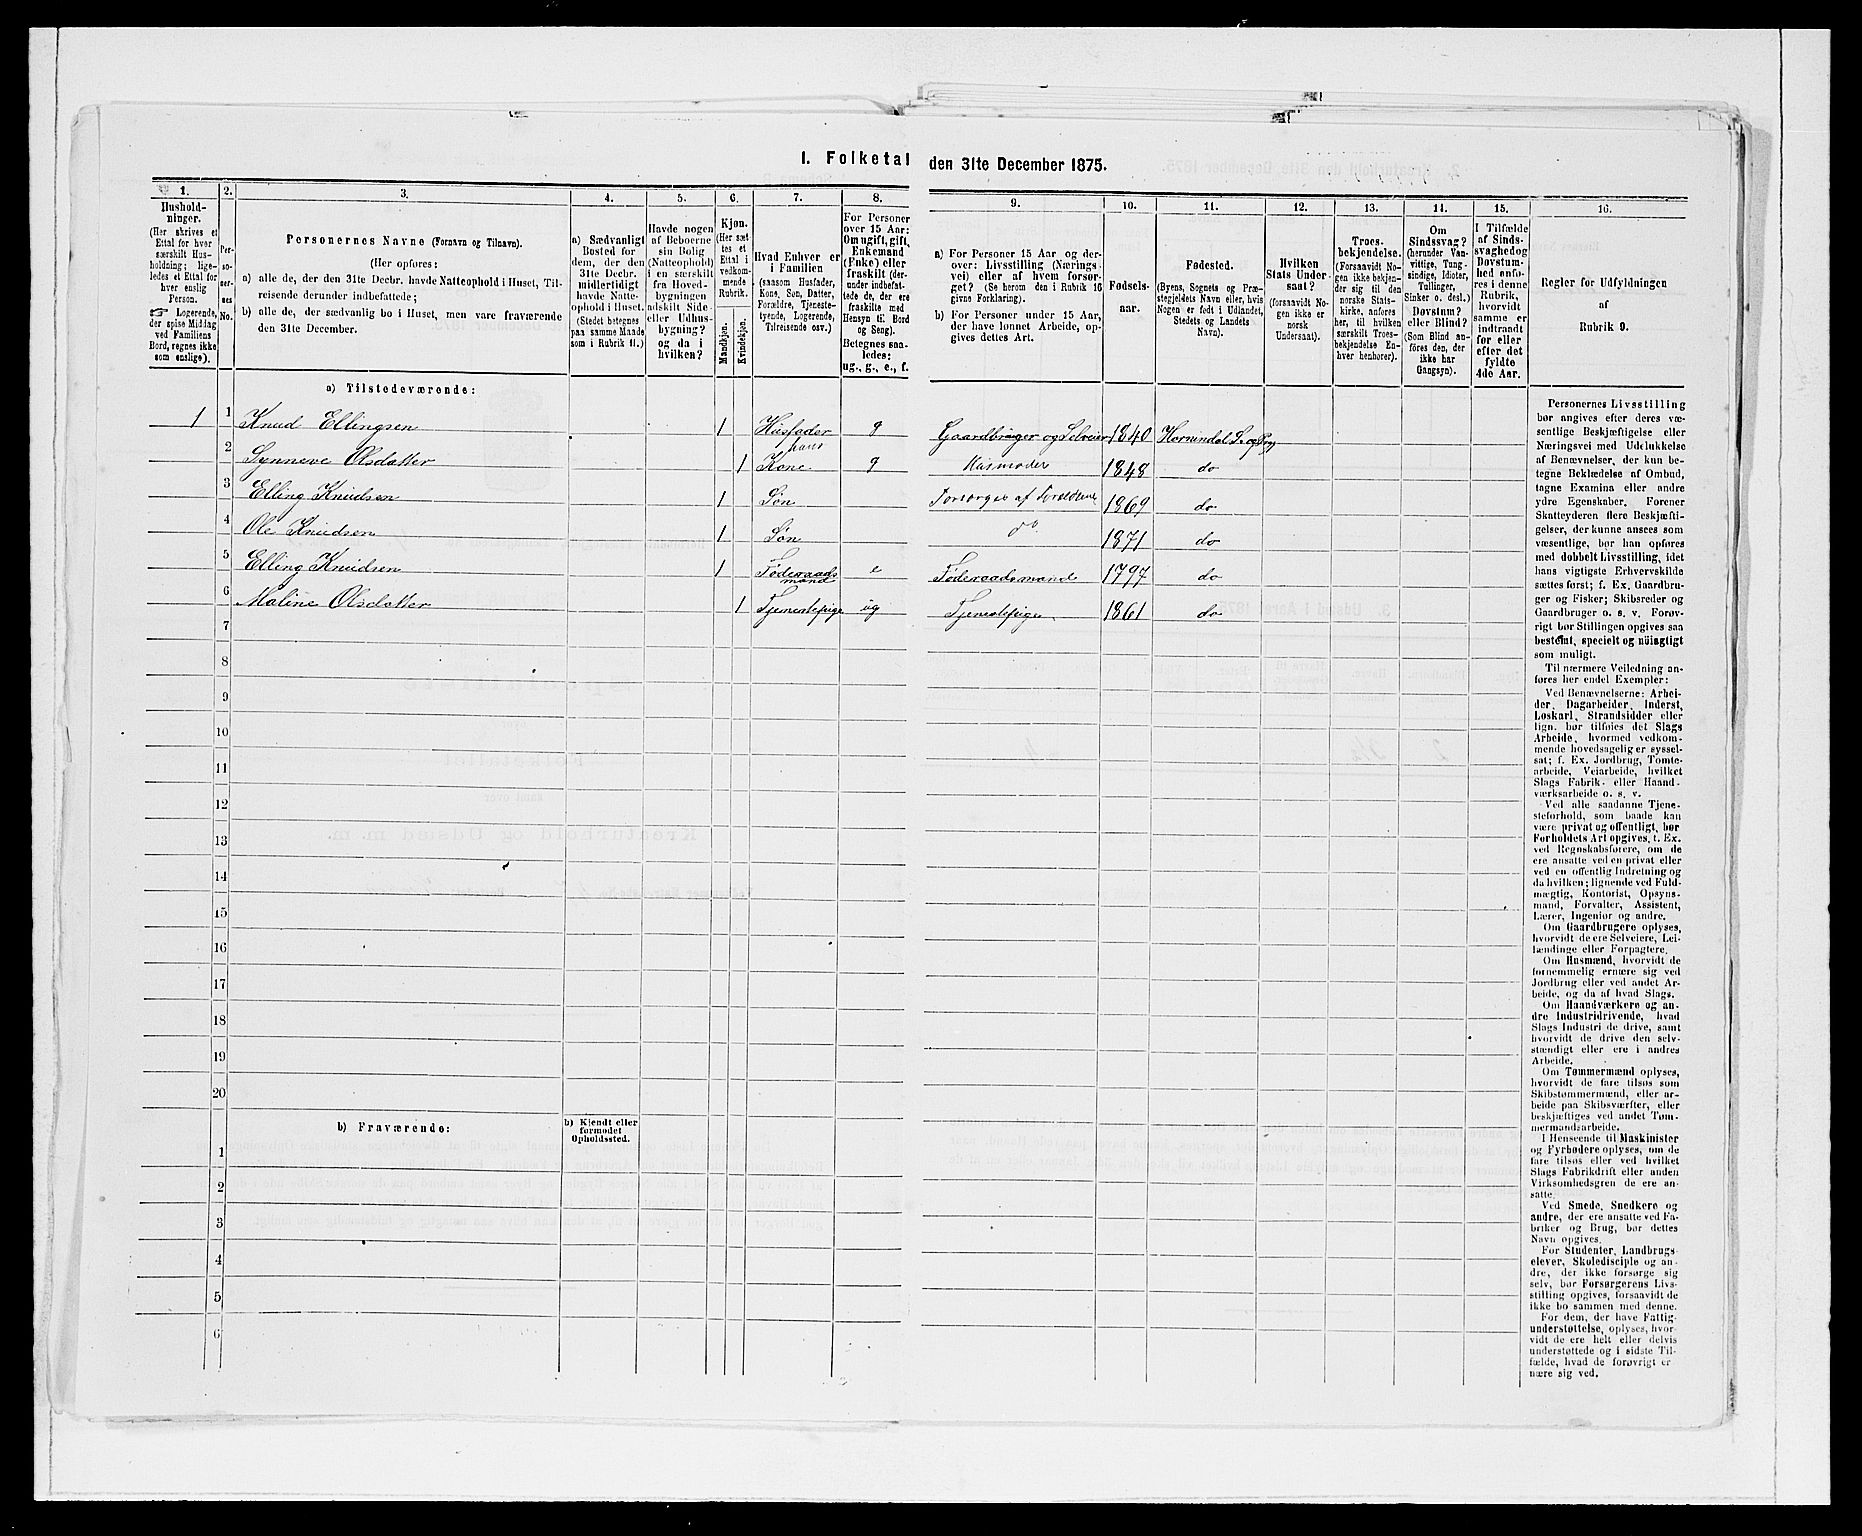 I. Folketal den 31te December 1875.
1. 2. 3. 4. 5. 6. 7. 8. 9. 10. 11. 12. 13. 14. 15. 16.
Hushold-
ninger.
(Her skrives et
Ettal for hver
særskilt Hus-
holdning; lige-
ledes et Ettal for
hver enslig
Person.
☞ Logerende,
der spise Middag
ved Familiens
Bord, regnes ikke
som enslige).
Per-
so-
ner-
nes
No.
Personernes Navne (Fornavn og Tilnavn).
(Her opføres:
a) alle de, der den 31te Decbr. havde Natteophold i Huset, Til-
reisende derunder indbefattede;
b) alle de, der sædvanlig bo i Huset, men vare fraværende
den 31te December.
a) Sædvanligt
Bosted for
dem, der den
31te Decbr.
midlertidigt
havde Natte-
ophold i Huset.
(Stedet betegnes
paa samme Maade
som i Rubrik 11.)
Havde nogen
af Beboerne
sin Bolig
(Natteophold)
i en særskilt
fra Hoved-
bygningen
adskilt Side-
eller Udhus-
bygning?
og da i
hvilken?
Kjøn.
(Her sæt-
tes et
Ettal i
vedkom-
mende
Rubrik.
Mandkjøn.
Kvindekjøn.
Hvad Enhver er
i Familien
(saasom Husfader,
Kone, Søn, Datter,
Forældre, Tjeneste-
tyende, Logerende,
Tilreisende osv.)
For Personer
over 15 Aar:
Om ugift, gift,
Enkemand
(Enke) eller
fraskilt (der-
under indbefat-
tede de, der ere
fraskilte med
Hensyn til Bord
og Seng).
Betegnes saa-
ledes:
ug., g., e., f.
a) For Personer 15 Aar og der-
over: Livsstilling (Nærings-
vei) eller af hvem forsør-
get? (Se herom den i Rubrik 16
givne Forklaring).
b) For Personer under 15 Aar,
der have lønnet Arbeide, op-
gives dettes Art.
Fødsels-
aar.
Fødested.
(Byens, Sognets og Præ-
stegjeldets Navn eller, hvis
Nogen er født i Udlandet,
Stedets og Landets
Navn).
Hvilken
Stats Under-
saat?
(forsaavidt No-
gen ikke er
norsk
Undersaat).
Troes-
bekjendelse.
(Forsaavidt No-
gen ikke bekjen-
der sig til den
norske Stats-
kirke, anføres
her, til hvilken
særskilt Troes-
bekjendelse En-
hver henhører).
Om
Sindssvag?
(herunder Van-
vittige, Tung-
sindige, Idioter,
Tullinger,
Sinker o. desl.)
Døvstum?
eller Blind?
(Som Blind an-
føres den, der
ikke har
Gangsyn).
I Tilfælde
af Sinds-
svaghed og
Døvstum-
hed anfø-
res i denne
Rubrik,
hvorvidt
samme er
indtraadt
før eller
efter det
fyldte
4de Aar.
Regler for Udfyldningen
af
Rubrik 9.
a) Tilstedeværende:
1 1 Knud Ellingsen 1 Husfader g Gaardbruger og Selveier 1840 Hornindal
2 Synneve Olsdatter 1 hans Kone g Husmoder 1848 do
3 Elling Knudsen 1 Søn Forsørges af Forældrene 1869 do
4 Ole Knudsen 1 Søn do 1871 do
5 Elling Knudsen 1 Føderaads
mand e Føderaadsmand 1797 do
6 Maline Olsdatter 1 Tjenestepige ug Tjenestepige 1861 do
7
8
9
10
11
12
13
14
15
16
17
18
19
20
b) Fraværende:
b) Kjendt eller
formodet
Opholdssted.
1
2
3
4
5
6
Personernes Livsstilling
bør angives efter deres væ-
sentlige Beskjæftigelse eller
Næringsvei med Udelukkelse
af Benævnelser, der kun be-
tegne Beklædelse af Ombud,
tagne Examina eller andre
ydre Egenskaber. Forener
Skatteyderen flere Beskjæfti-
gelser, der kunne ansees som
væsentlige, bør han opføres
med dobbelt Livsstilling, idet
hans vigtigste Erhvervskilde
sættes først; f. Ex. Gaardbru-
ger og Fisker; Skibsreder og
Gaardbruger o. s. v. Forøv-
rigt bør Stillingen opgives saa
bestemt, specielt og nøiagtigt
som muligt.
Til nærmere Veiledning an-
føres her endel Exempler:
Ved Benævnelserne: Arbei-
der, Dagarbeider, Inderst,
Løskarl, Strandsidder eller
lign. bør tilføies det Slags
Arbeide, hvormed vedkom-
mende hovedsagelig er syssel-
sat; f. Ex. Jordbrug, Tomte-
arbeide, Veiarbeide, hvilket
Slags Fabrik- eller Haand-
værksarbeide o. s. v.
Ved alle saadanne Tjene-
steforhold, som baade kan
være privat og offentligt, bør
Forholdets Art opgives, t. Ex.
ved Regnskabsførere, om de
ere ansatte ved en privat eller
ved en offentlig Indretning og
da hvilken; lignende ved Fuld-
mægtig, Kontorist, Opsyns-
mand, Forvalter, Assistent,
Lærer, Ingeniør og andre.
Om Gaardbrugere oplyses,
hvorvidt de ere Selveiere, Lei-
lændinge eller Forpagtere.
Om Husmænd, hvorvidt de
fornemmelig ernære sig ved
Jordbrug eller ved andet Ar-
beide, og da af hvad Slags.
Om Haandværkere og an-
dre Industridrivende, hvad
Slags Industri de drive, samt
hvorvidt de drive den selv-
stændigt eller ere i andres
Arbeide.
Om Tømmermænd oplyses,
hvorvidt de fare tilsøs som
Skibstømmermænd, eller ar-
beide paa Skibsværfter, eller
beskjæftiges ved andet Tøm-
mermandsarbeide.
I Henseende til Maskinister
og Fyrbødere oplyses, om de
fare tilsøs eller ved hvilket
Slags Fabrikdrift eller anden
Virksomhedsgren de ere an-
satte.
Ved Smede, Snedkere og
andre, der ere ansatte ved Fa-
briker og Brug, bør dettes
Navn opgives.
For Studenter, Landbrugs-
elever, Skoledisciple og an-
dre, der ikke forsørge sig
selv, bør Forsørgerens Livs-
stilling opgives, forsaavidt de
ikke bo sammen med denne.
For dem, der have Fattig-
understøttelse, oplyses, hvor-
vidt de ere helt eller delvis
understøttede og i sidste Til-
fælde, hvad de forøvrigt er
nære sig ved.